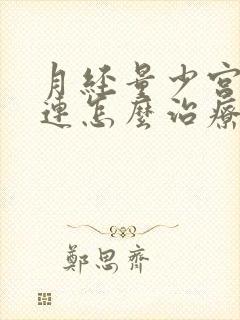 月經量少宮
連怎麼治療
鄭思齊